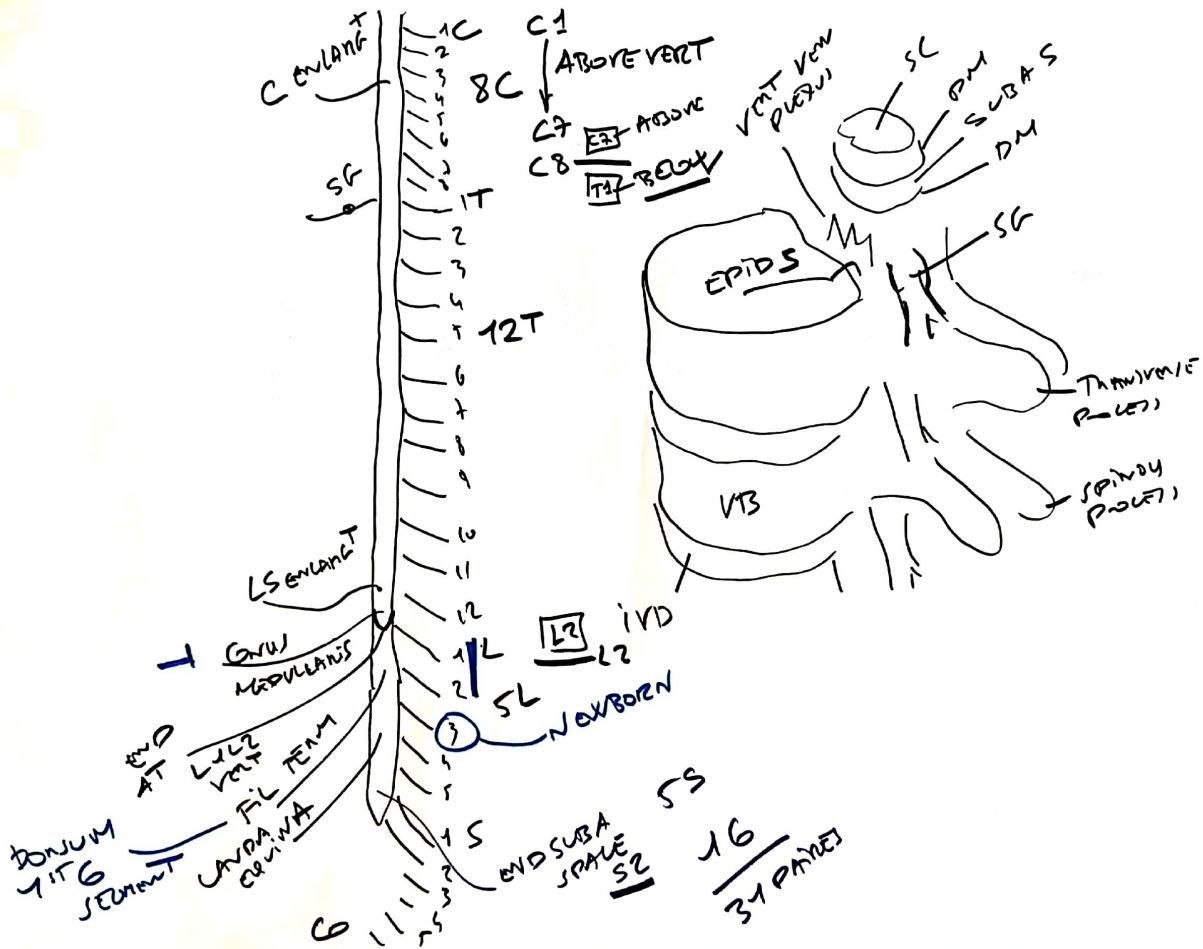 C ENLANGT
SG
1C
2
3
4
5
6
7
8
8C
C1
ABOVE VERT
C7
C7
ABOVE
C8
T1
BELOW
1T
2
3
4
5
6
7
8
9
10
11
12
12T
LS ENLANGT
CONUS
MEDULLARIS
END
AT L1L2
VERT
FIL TERM
CAUDA
EQUINA
1L
2
3
4
5
5L
L2
L2
NEWBORN
1S
2
3
4
5
5S
END SUBA
SPACE
S2
1G
31 PAIRES
CO
SEGMENT
VERT VEN
PLEXUS
SC
PM
SUBA S
DM
EPID S
SG
TRANSVERSE
PROCESS
SPINOUS
PROCESS
VB
IVD